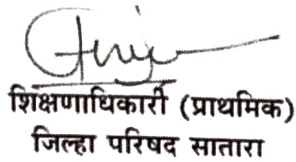 शिक्षणाधिकारी (प्राथमिक)
जिल्हा परिषद सातारा